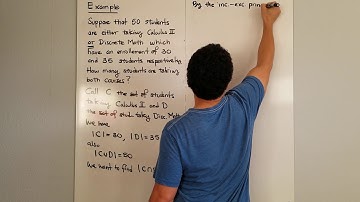 Example
Suppose that 50 students
are either taking Calculus II
or Discrete Math which
have an enrollment of 30
and 35 students respectively.
How many students are taking
both courses?
Call C the set of students
taking Calculus II and D
the set of stud. taking Disc. Math
We have
|C|=30, |D|=35
also
|C∪D|=50
We want to find |C∩
By the inc.-exc. prin